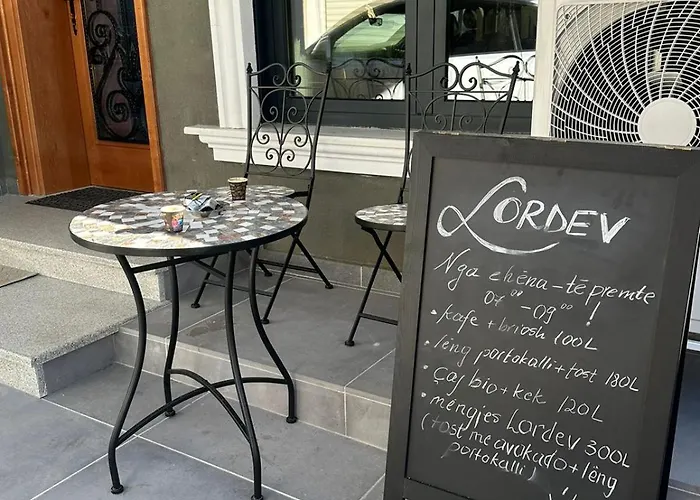 LORDEV
Nga ehëna-të premte
07⁰⁰-09⁰⁰!
• kafe + briosh 100L
• lëng portokalli + tost 180L
• çaj bio + kek 120L
• mëngjes Lordev 300L
(tost me avokado + lëng
portokalli)